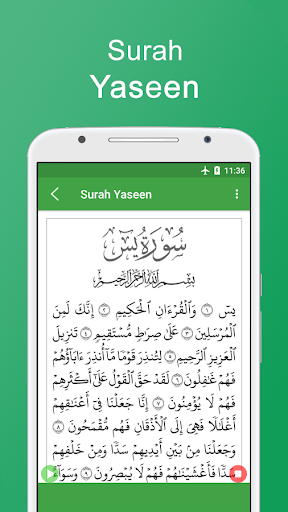 Surah
Yaseen
11:36
Surah Yaseen
سُورَةُ يسٓ
بِسْمِ اللَّهِ الرَّحْمَٰنِ الرَّحِيمِ
يسٓ ١ وَٱلْقُرْءَانِ ٱلْحَكِيمِ ٢ إِنَّكَ لَمِنَ
ٱلْمُرْسَلِينَ ٣ عَلَىٰ صِرَٰطٍ مُّسْتَقِيمٍ ٤ تَنزِيلَ
ٱلْعَزِيزِ ٱلرَّحِيمِ ٥ لِتُنذِرَ قَوْمًا مَّآ أُنذِرَ ءَابَآؤُهُمْ
فَهُمْ غَٰفِلُونَ ٦ لَقَدْ حَقَّ ٱلْقَوْلُ عَلَىٰٓ أَكْثَرِهِمْ
فَهُمْ لَا يُؤْمِنُونَ ٧ إِنَّا جَعَلْنَا فِىٓ أَعْنَٰقِهِمْ
أَغْلَٰلًا فَهِىَ إِلَى ٱلْأَذْقَانِ فَهُم مُّقْمَحُونَ ٨
وَجَعَلْنَا مِنۢ بَيْنِ أَيْدِيهِمْ سَدًّا وَمِنْ خَلْفِهِمْ
سَدًّا فَأَغْشَيْنَٰهُمْ فَهُمْ لَا يُبْصِرُونَ ٩ وَسَوَآءٌ